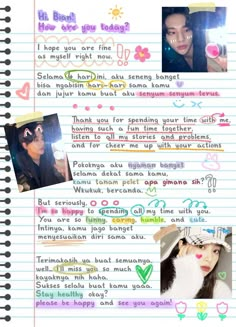 Hi Bian!
How are you today?
I hope you are fine
as myself right now.
Selama 4 hari ini, aku seneng banget
bisa ngabisin hari-hari sama kamu
dan jujur kamu buat aku senyum senyum terus.
Thank you for spending your time with me,
having such a fun time together,
listen to all my stories and problems,
and for cheer me up with your actions
Pokoknya aku nyaman banget
selama dekat sama kamu,
samu tanam pelet apa gimana sih?
Wkwkwk, bercanda,
But seriously,
I'm so happy to spending all my time with you.
You are so funny, caring, humble, and cute.
Intinya, kamu jago banget
menyesuaikan diri sama aku.
Terimakasih ya buat semuanya.
well, I'll miss you so much
kayaknya nih haha.
Sukses selalu buat kamu yaaa.
Stay healthy okay?
please be happy and see you again!